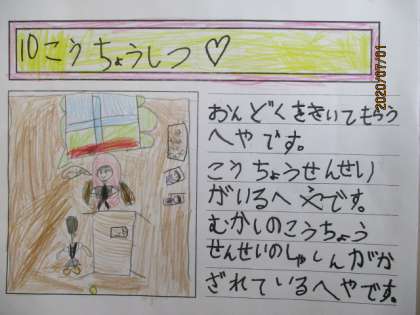 10こうちょうしつ♡
おんどくをきいてもらう
へやです。
こうちょうせんせい
がいるへやです。
むかしのこうちょう
せんせいのしゃしんがか
ざれているへやです。
2020/07/01